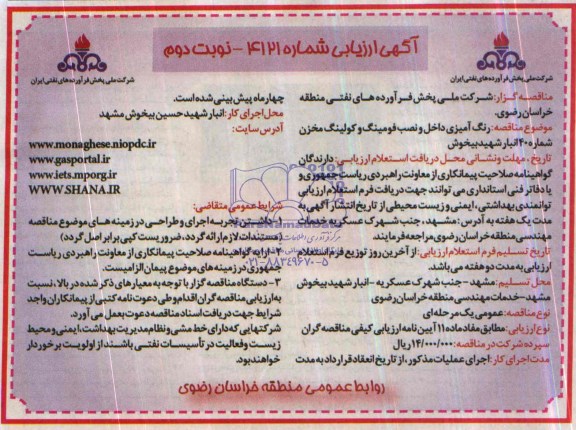 آگهی ارزیابی شماره ۴۱۲۱ - نوبت دوم
شرکت ملی پخش فرآورده های نفتی ایران
شرکت ملی پخش فرآورده های نفتی ایران
مناقصه گزار: شرکت ملی پخش فرآورده های نفتی منطقه
خراسان رضوی.
موضوع مناقصه: رنگ آمیزی داخل و نصب فومینگ و کولینگ مخزن
شماره ۴۰ انبار شهید بیخوش
تاریخ، مهلت و نشانی محل دریافت استعلام ارزیابی: دارندگان
گواهینامه صلاحیت پیمانکاری از معاونت راهبردی ریاست جمهوری و
یا دفاتر فنی استانداری می توانند جهت دریافت فرم استعلام ارزیابی
توانمندی بهداشتی، ایمنی و زیست محیطی از تاریخ انتشار آگهی به
مدت یک هفته به آدرس: مشهد، جنب شهرک عسکریه خدمات
مهندسی منطقه خراسان رضوی مراجعه فرمایند.
تاریخ تسلیم فرم استعلام ارزیابی: از آخرین روز توزیع فرم استعلام
ارزیابی به مدت دو هفته می باشد.
محل تسلیم: مشهد - جنب شهرک عسکریه - انبار شهید بیخوش
مشهد - خدمات مهندسی منطقه خراسان رضوی
نوع مناقصه: عمومی یک مرحله ای
نوع ارزیابی: مطابق مفاد ماده ۱۱ آیین نامه ارزیابی کیفی مناقصه گران
سپرده شرکت در مناقصه: ۱۴/۰۰۰/۰۰۰ ریال
مدت اجرای کار: اجرای عملیات مذکور، از تاریخ انعقاد قرارداد به مدت
چهار ماه پیش بینی شده است.
محل اجرای کار: انبار شهید حسین بیخوش مشهد
آدرس سایت:
www.monaghese.niopdc.ir
www.gasportal.ir
www.iets.mporg.ir
WWW.SHANA.IR
شرایط عمومی متقاضی:
۱- داشتن تجربه اجرای و طراحی در زمینه های موضوع مناقصه
(مستندات لازم ارائه گردد، ضروریست کپی برابر اصل گردد)
۲- ارایه گواهینامه صلاحیت پیمانکاری از معاونت راهبردی ریاست
جمهوری در زمینه های موضوع پیمان الزامیست.
۳- دستگاه مناقصه گزار با توجه به معیارهای ذکر شده در بالا، نسبت
به ارزیابی مناقصه گران اقدام و طی دعوت نامه کتبی از پیمانکاران واجد
شرایط جهت دریافت اسناد مناقصه دعوت بعمل می آورد.
شرکتهایی که دارای خط مشی و نظام مدیریت بهداشت، ایمنی و محیط
زیست و فعالیت در تأسیسات نفتی باشند از اولویت برخوردار
خواهند بود.
روابط عمومی منطقه خراسان رضوی
۰۲۱-۸۸۳۴۹۶۷۰-۵